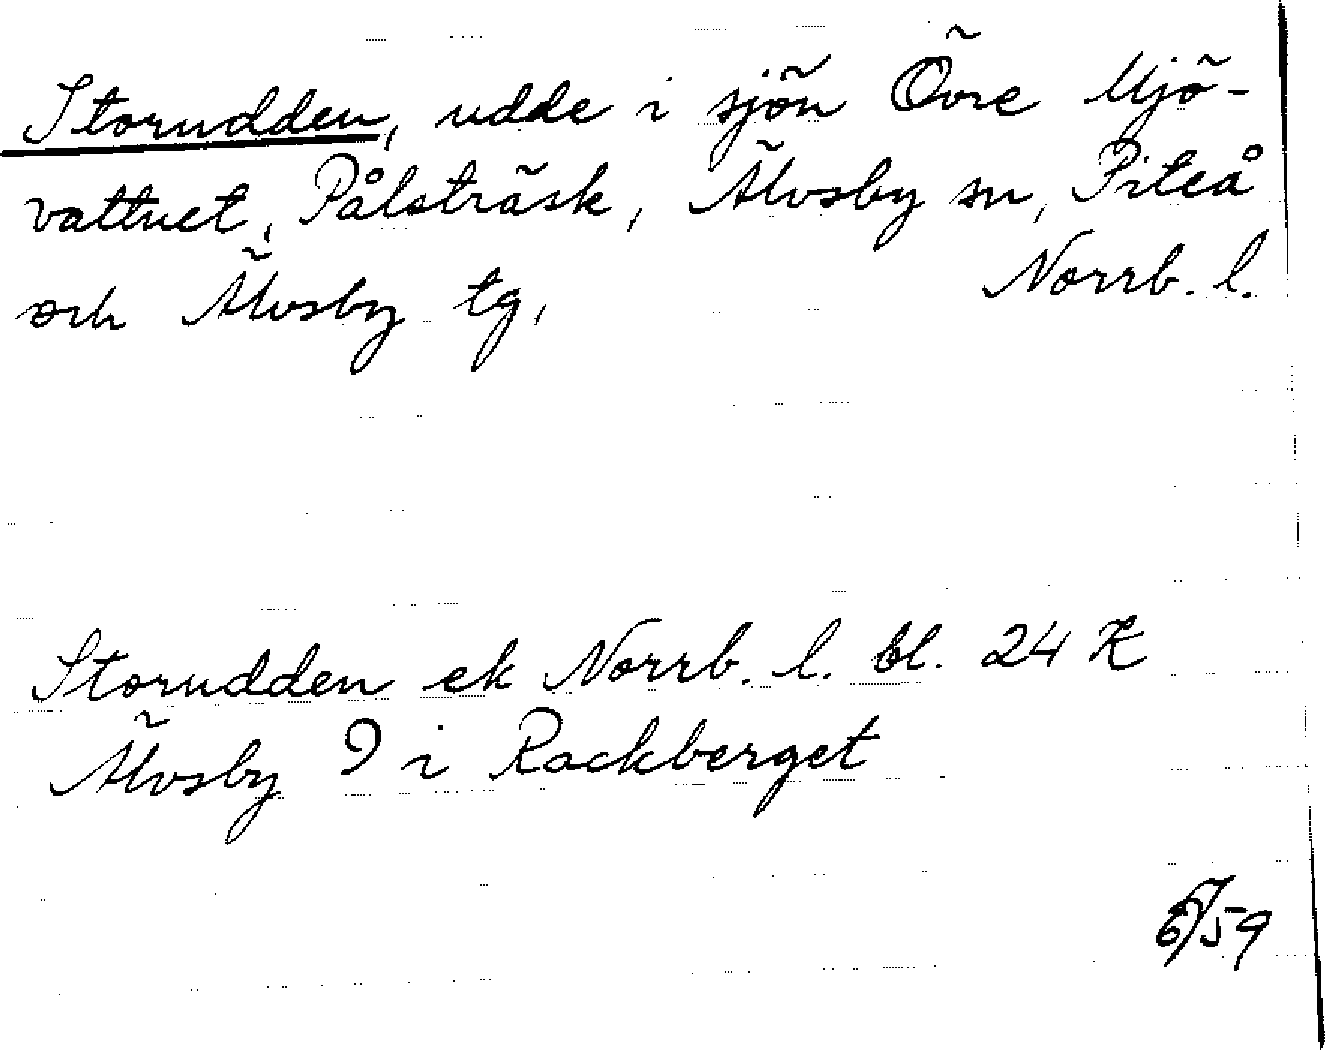 Storudden, udde i sjön Övre Mjö-
vattnet, Pålsträsk, Älvsby sn, Piteå
och Älvsby tg, Norrb. l.
Storudden ek Norrb. l. bl. 24 K
Älvsby 9 i Rackberget
59